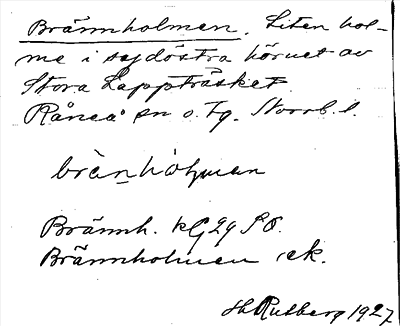 Brännholmen. Liten hol-
me i sydöstra hörnet av
Stora Lappträsket
Råneå sn o. tg. Norrb. l.
brànhòlman
Brännh. kG29 SO.
Brännholmen ek.
Hl Rutberg 1927